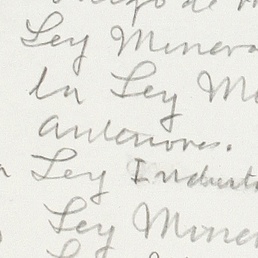 de
Ley Minera
la Ley M
anteriores.
Ley Industr
Ley Miner